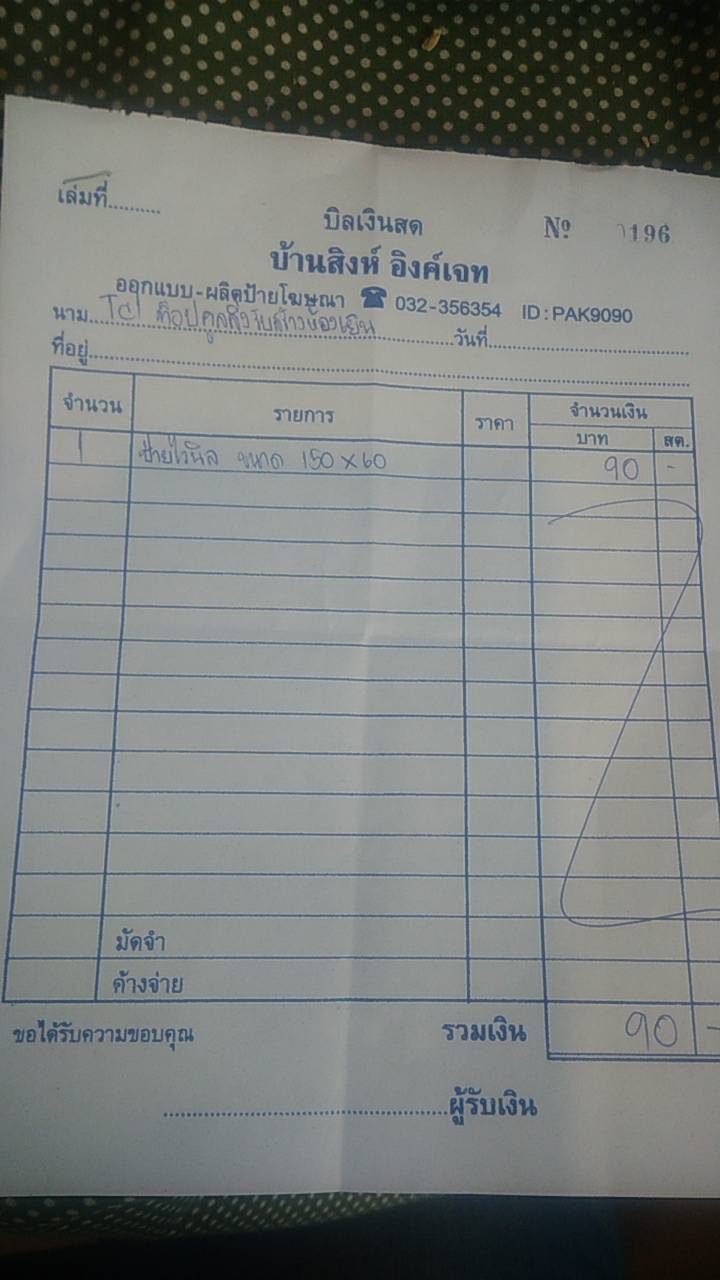 เล่มที่..........
บิลเงินสด
Nº 0196
บ้านสิงห์ อิงค์เจท
ออกแบบ-ผลิตป้ายโฆษณา ☎ 032-356354 ID : PAK9090
นาม..... Tcl ท็อปคูลลิ่ง รับล้างห้องเย็น .....วันที่..........
ที่อยู่..........
จำนวน รายการ ราคา จำนวนเงิน
บาท สต.
1 ป้ายไวนิล ขนาด 150 x 60 90 -
มัดจำ
ค้างจ่าย
ขอได้รับความขอบคุณ รวมเงิน 90 -
..........ผู้รับเงิน